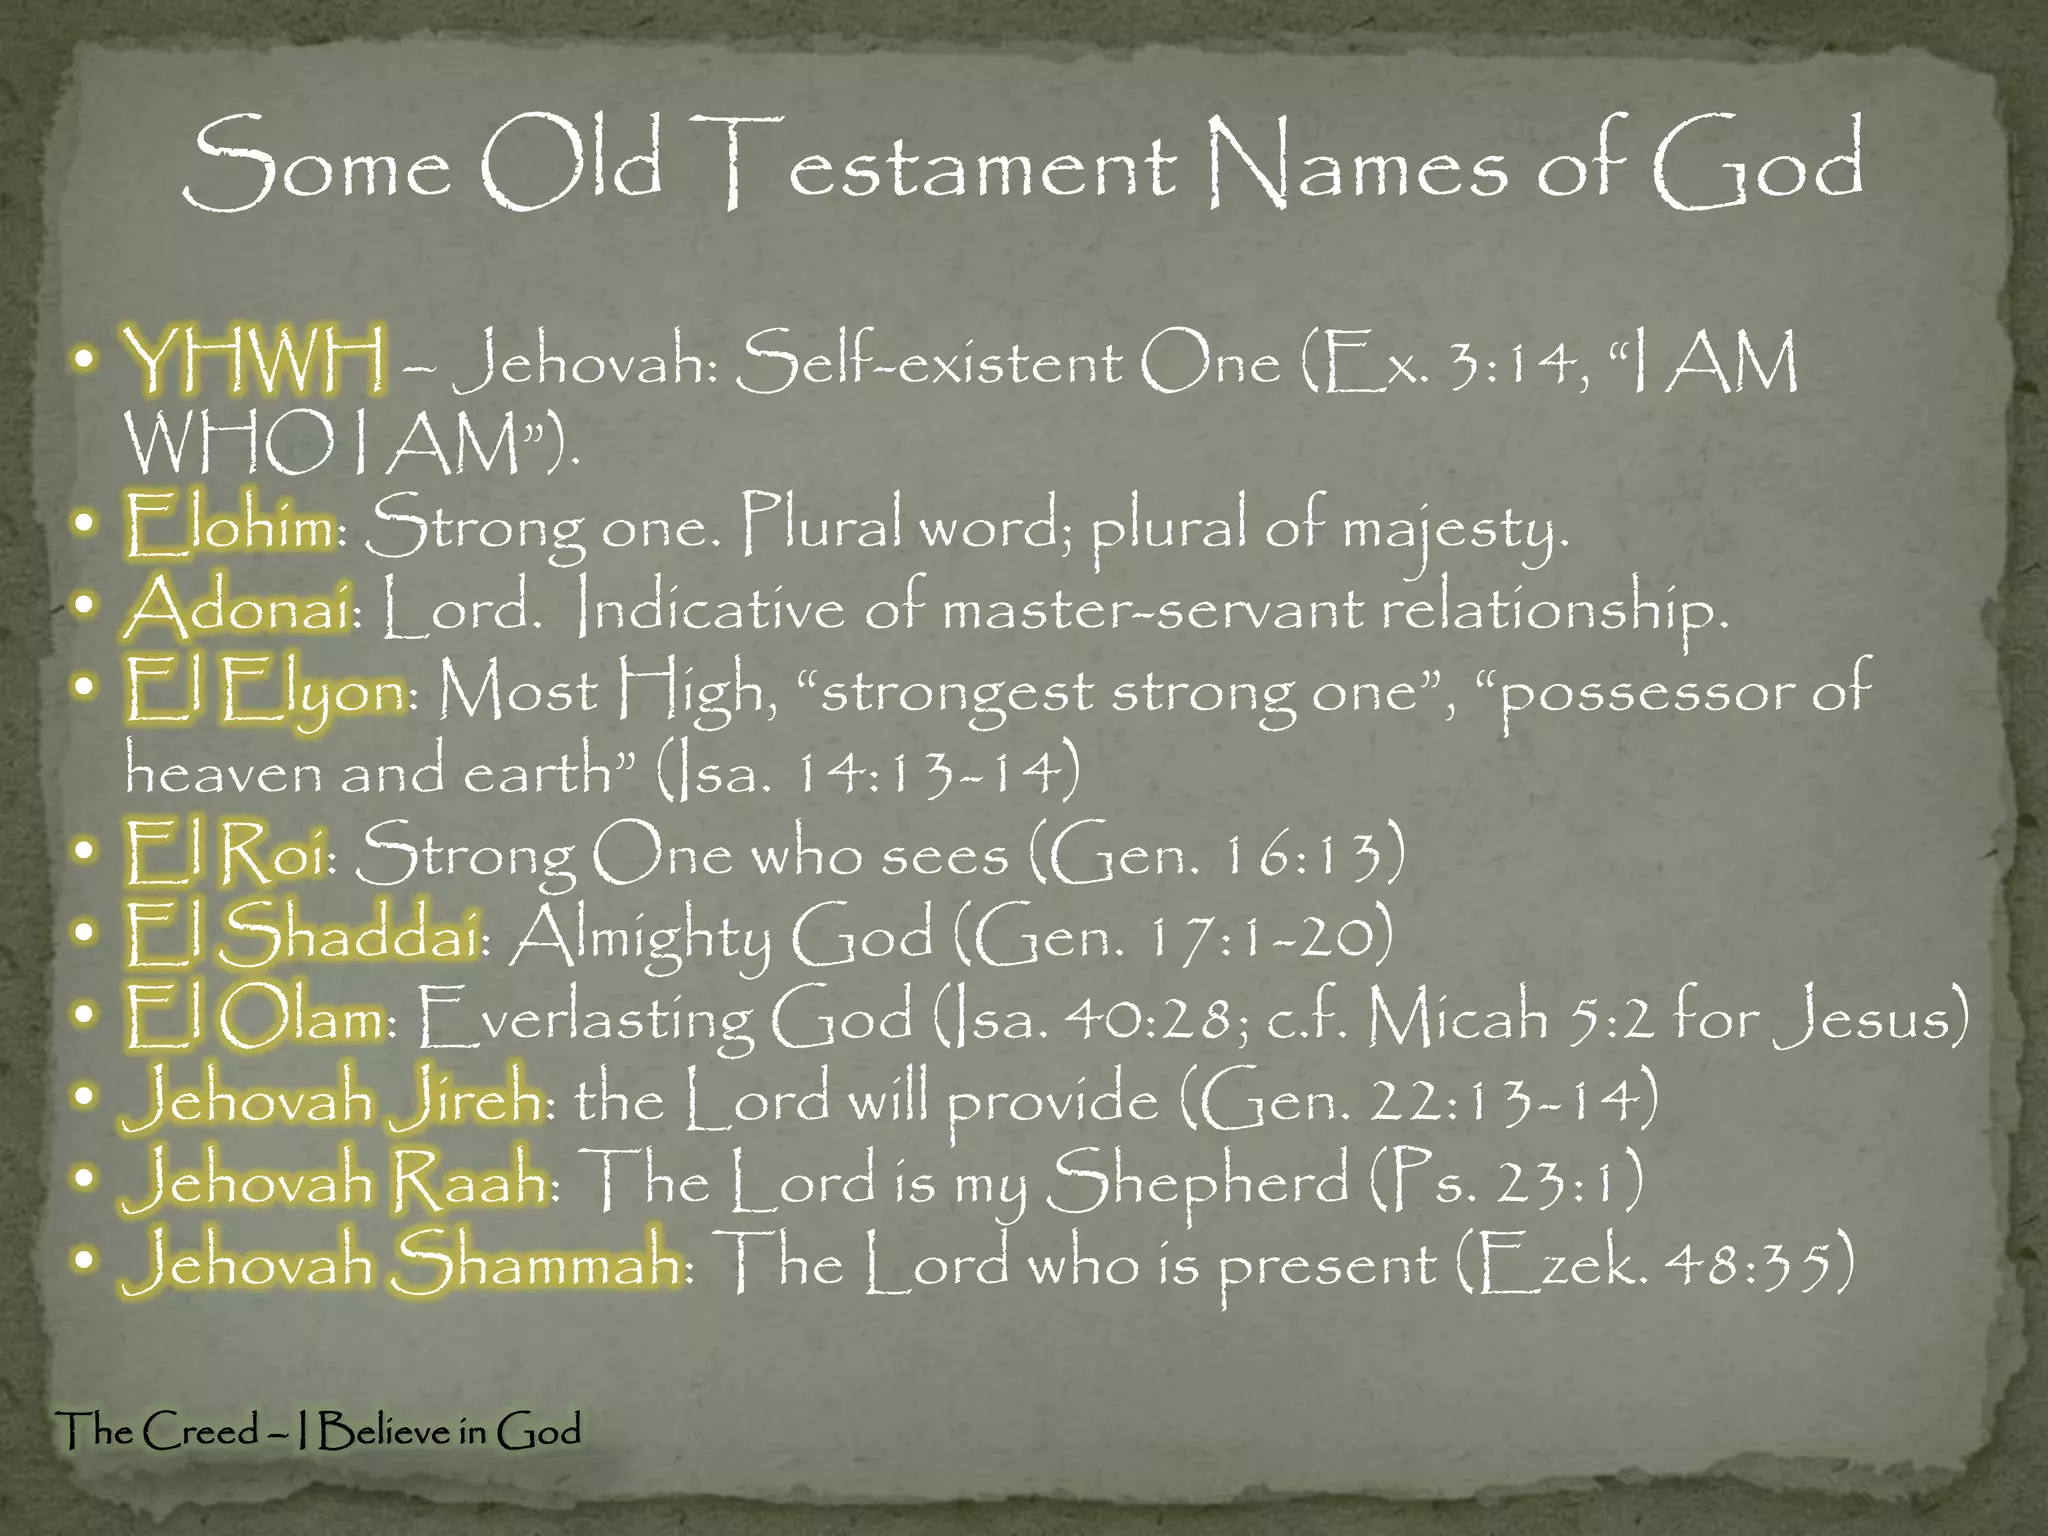 Some Old Testament Names of God
• YHWH – Jehovah: Self-existent One (Ex. 3:14, “I AM
WHO I AM”).
• Elohim: Strong one. Plural word; plural of majesty.
• Adonai: Lord. Indicative of master-servant relationship.
• El Elyon: Most High, “strongest strong one”, “possessor of
heaven and earth” (Isa. 14:13-14)
• El Roi: Strong One who sees (Gen. 16:13)
• El Shaddai: Almighty God (Gen. 17:1-20)
• El Olam: Everlasting God (Isa. 40:28; c.f. Micah 5:2 for Jesus)
• Jehovah Jireh: the Lord will provide (Gen. 22:13-14)
• Jehovah Raah: The Lord is my Shepherd (Ps. 23:1)
• Jehovah Shammah: The Lord who is present (Ezek. 48:35)
The Creed – I Believe in God